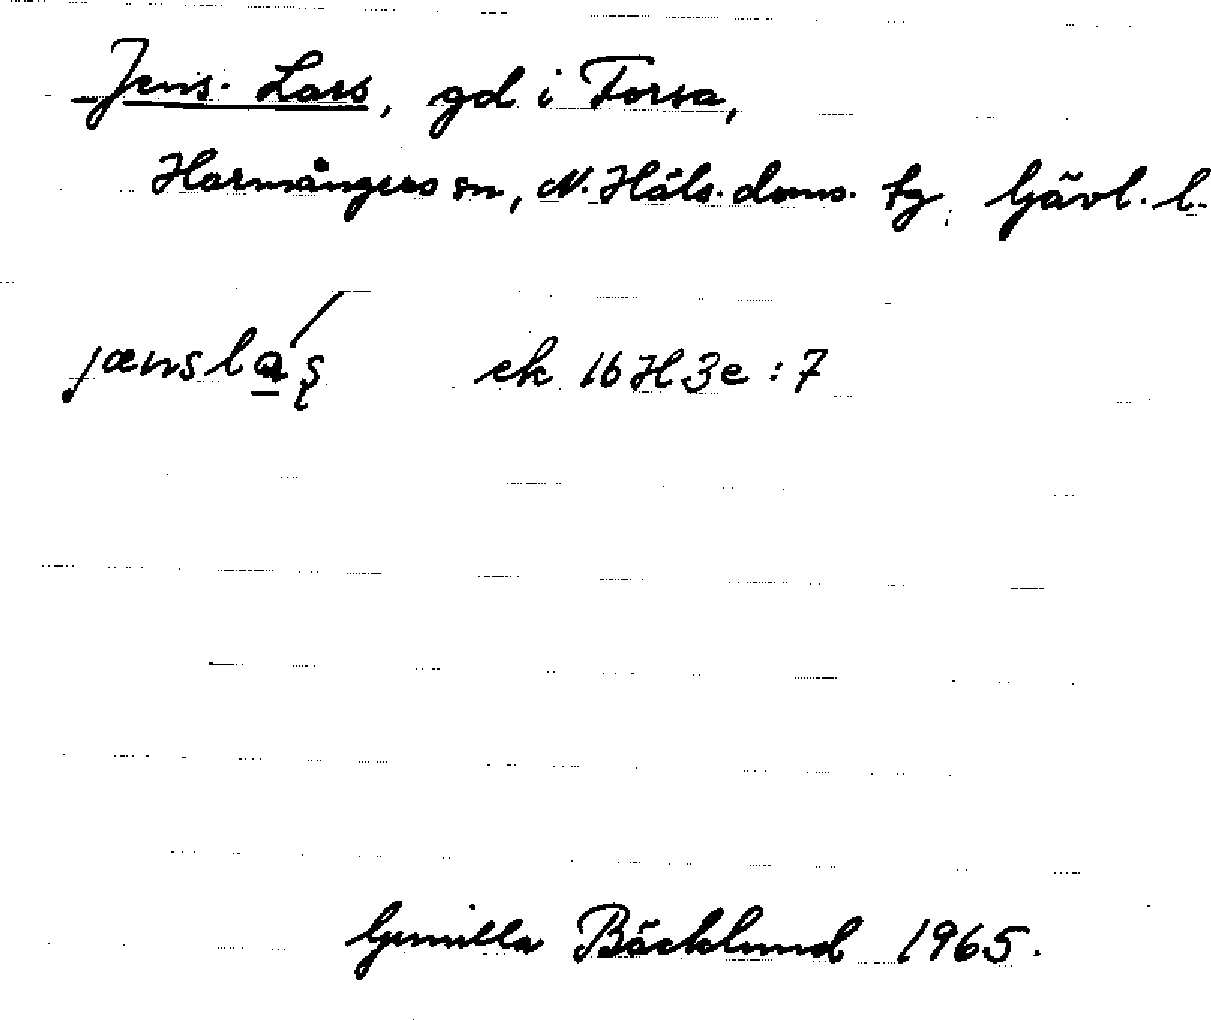 Jens. Lars, gd i Forsa,
Harmångers sn, N. Häls. doms. tg, Gävl. l.
jænsla̲ʂ ek 16H3e:7
Gunilla Bäcklund 1965.